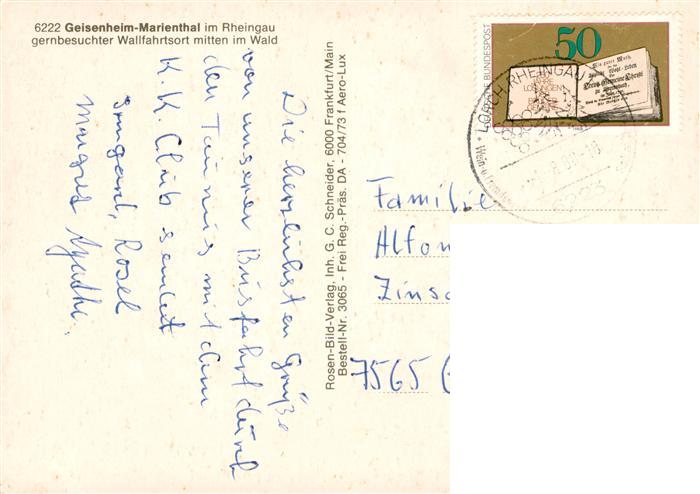 6222 Geisenheim-Marienthal im Rheingau
gernbesuchter Wallfahrtsort mitten im Wald
Die herzlichsten Grüße
von unserer Busfahrt durch
den Taunus mit dem
K.K. Club sendet
Irmgard, Rosel
Margret Agathe.
Rosen-Bild-Verlag. Inh. G. C. Schneider, 6000 Frankfurt/Main
Bestell-Nr. 3065 - Frei Reg.-Präs. DA - 704/73 f Aero-Lux
50
DEUTSCHE BUNDESPOST
LOSUNGEN
LORCH, RHEINGAU
6223
Familie
Alfon
Zinsc
7565